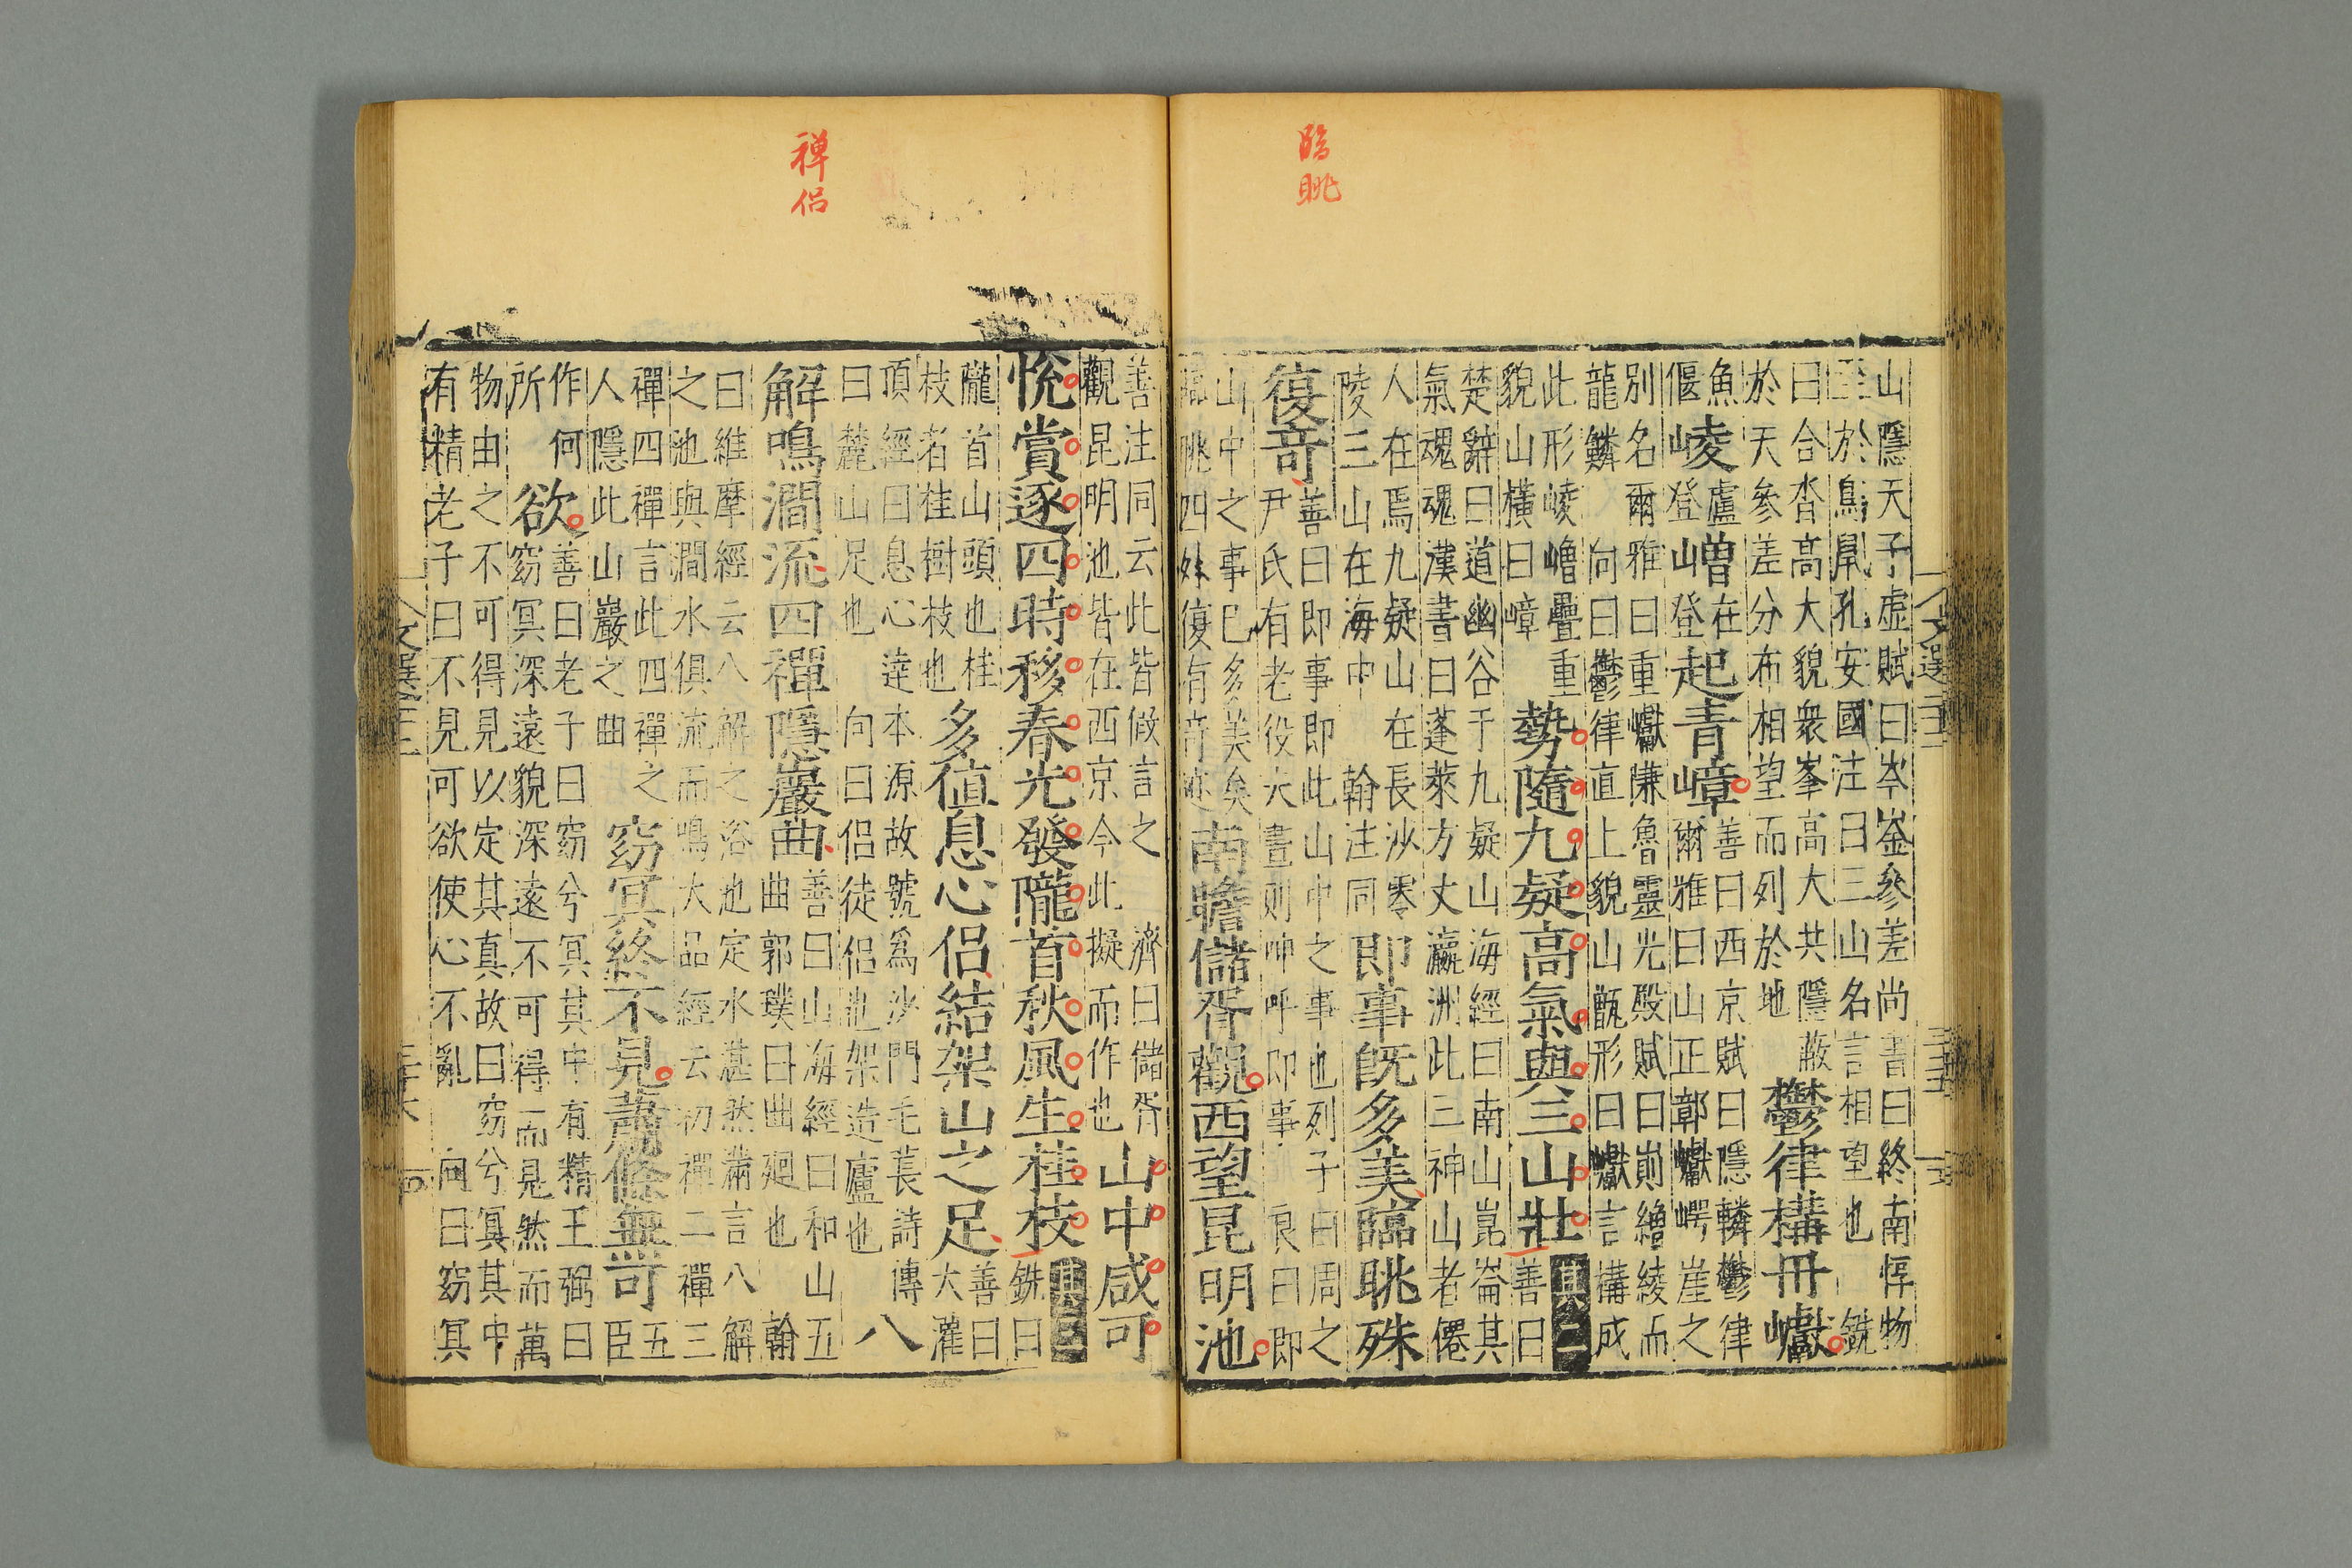 臨眺
山隱天子虛賦曰岑崟參差尚書曰終南惇物
至於鳥鼠孔安國注曰三山名言相望也 銑
曰合沓高大貌衆峯高大共隱蔽
於天參差分布相望而列於地
鬱律構冊巘
魚偃
崚
盧登
嶒
在登
起青嶂
善曰西京賦曰隱轔鬱律
爾雅曰山正鄣巘崿崖之
別名爾雅曰重巘隒魯靈光殿賦曰崱繒綾而
龍鱗 向曰鬱律直上貌山甑形曰巘言構成
此形崚嶒疊重
貌山橫曰嶂
勢隨九疑高氣與三山壯
其二
善曰
楚辭曰道幽谷于九疑山海經曰南山崑崙其
氣魂魂漢書曰蓬萊方丈瀛洲此三神山者僊
人在焉九疑山在長沙零
陵三山在海中 翰注同
即事既多美臨眺殊
復奇
善曰即事即此山中之事也列子曰周之
尹氏有老役夫晝則呻呼即事 良曰即
山中之事已多美矣
臨眺四妹復有奇迹
南瞻儲胥觀西望昆明池
文選二十二
禪侶
善注同云此皆候言之 濟曰儲胥
觀昆明池皆在西京今此擬而作也
山中咸可
悅賞逐四時移春光發隴首秋風生桂枝
其三
銑曰
隴首山頭也桂
枝者桂樹枝也
多值息心侶結架山之足
善曰
大灌
頂經曰息心達本源故號爲沙門毛萇詩傳
曰麓山足也 向曰侶徒侶也架造廬也
八
解鳴澗流四禪隱巖曲
善曰山海經曰和山五
曲曲郭璞曰曲廻也 翰
曰維摩經云八解之浴池定水湛然滿言八解
之池與澗水俱流而鳴大品經云初禪二禪三
禪四禪言此四禪之
人隱此山巖之曲
窈冥終不見蕭條無可
五
臣
作何
所
欲
善曰老子曰窈兮冥其中有精王弼曰
窈冥深遠貌深遠不可得而見然而萬
物由之不可得見以定其真故曰窈兮冥其中
有精老子曰不見可欲使心不亂 向曰窈冥